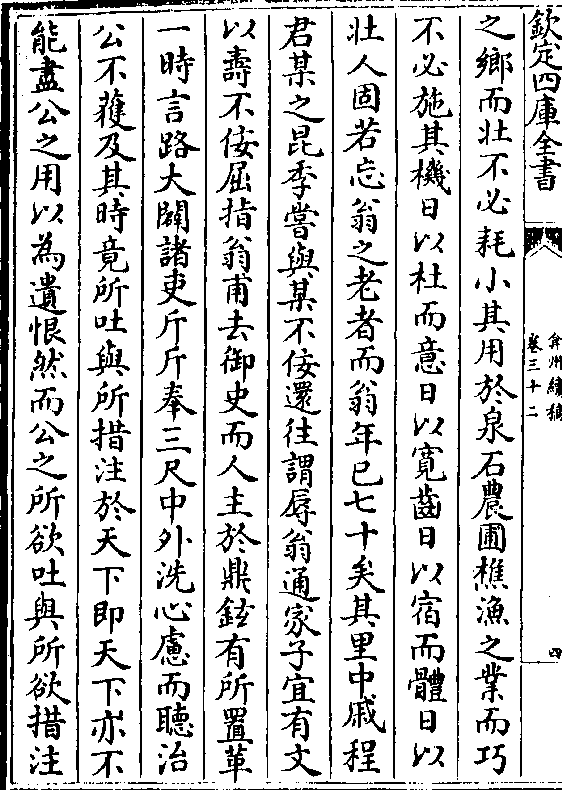 欽定四庫全書
弇州續稿
卷三十二
四
之鄉而壯不必耗小其用於泉石農圃樵漁之業而巧
不必施其機日以杜而意日以寛齒日以宿而體日以
壯人固若忘翁之老者而翁年已七十矣其里中戚程
君某之昆季嘗與某不佞還往謂辱翁通家子宜有文
以壽不佞屈指翁甫去御史而人主於鼎鉉有所置革
一時言路大闢諸吏斤斤奉三尺中外洗心慮而聽治
公不獲及其時竟所吐與所措注於天下即天下亦不
能盡公之用以為遺恨然而公之所欲吐與所欲措注